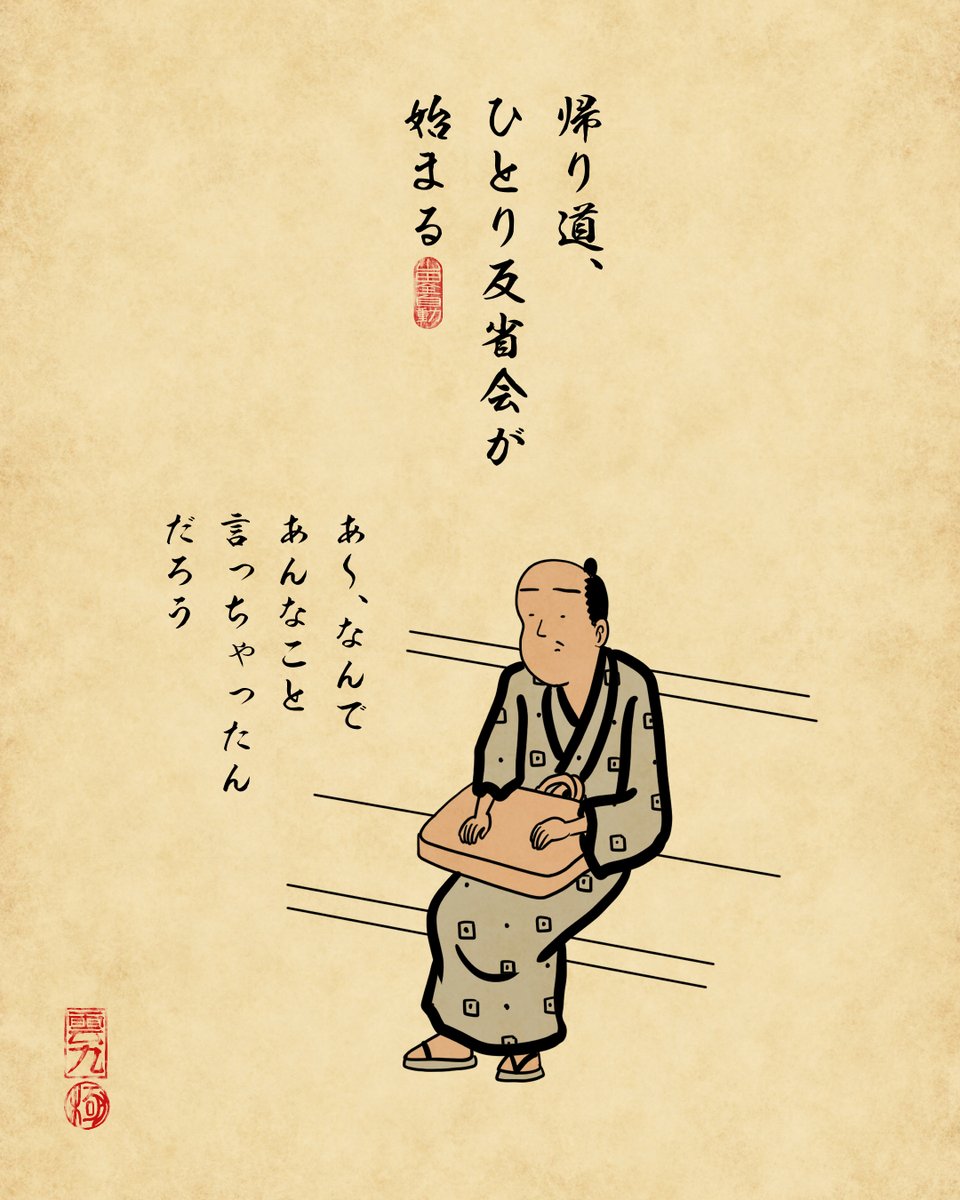 帰り道、
ひとり反省会が
始まる
あ〜、なんで
あんなこと
言っちゃったん
だろう